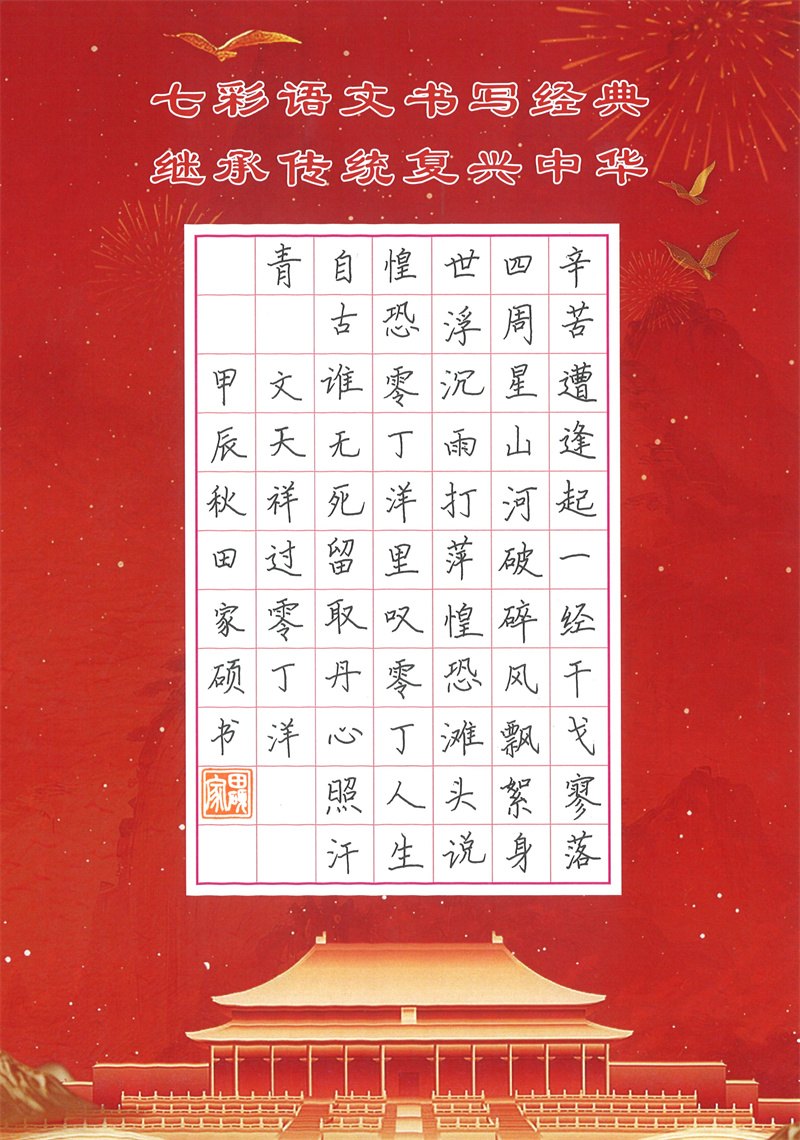 七彩语文书写经典
继承传统复兴中华
辛苦遭逢起一经干戈寥落
四周星山河破碎风飘絮身
世浮沉雨打萍惶恐滩头说
惶恐零丁洋里叹零丁人生
自古谁无死留取丹心照汗
青 文天祥过零丁洋
甲辰秋田家硕书
田硕家